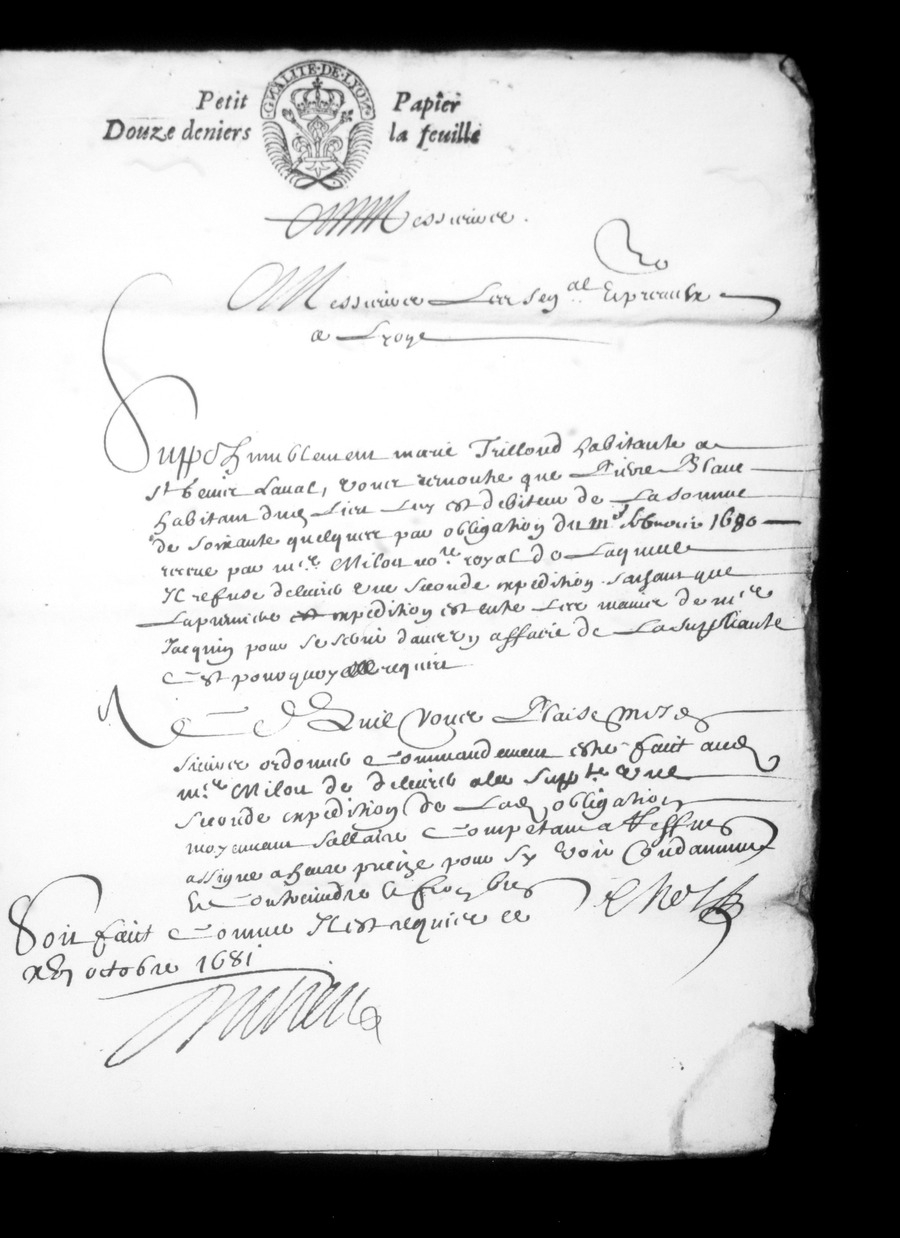 Petit Papier
Douze deniers la feuille
GNALITE·DE·LYON
Messieurs
Messieurs Les sen^al Et presid^x
a Lyon
Supp^e humblement marie Trillond habitante a
S^t Genis Laval, vous remontre que Pierre Blanc
habitant dud Lieu Luy est debiteur de La somme
de soixante quelques par obligation du febvrier 1680
receue par m^re Milou no^re royal de Laquelle
Il refuse delivrer une seconde expedition disant que
La premiere expedition est entre Les mains de m^re
Jacquin pour s'en servir dans affaire de La suppliante
C'est pourquoy elle requiert
Ce Quil Vous Plaise Mesd
sieurs ordonner Commandement estre fait aud
m^re Milou de delivrer a la Supp^te une
seconde expedition de Lad obligation
moyennant sallaire Competant a Ces fins
assigné a heure precize pour sy voir Condamner
Et Contraindre
Soit fait Comme Il est requis ce
octobre 1681